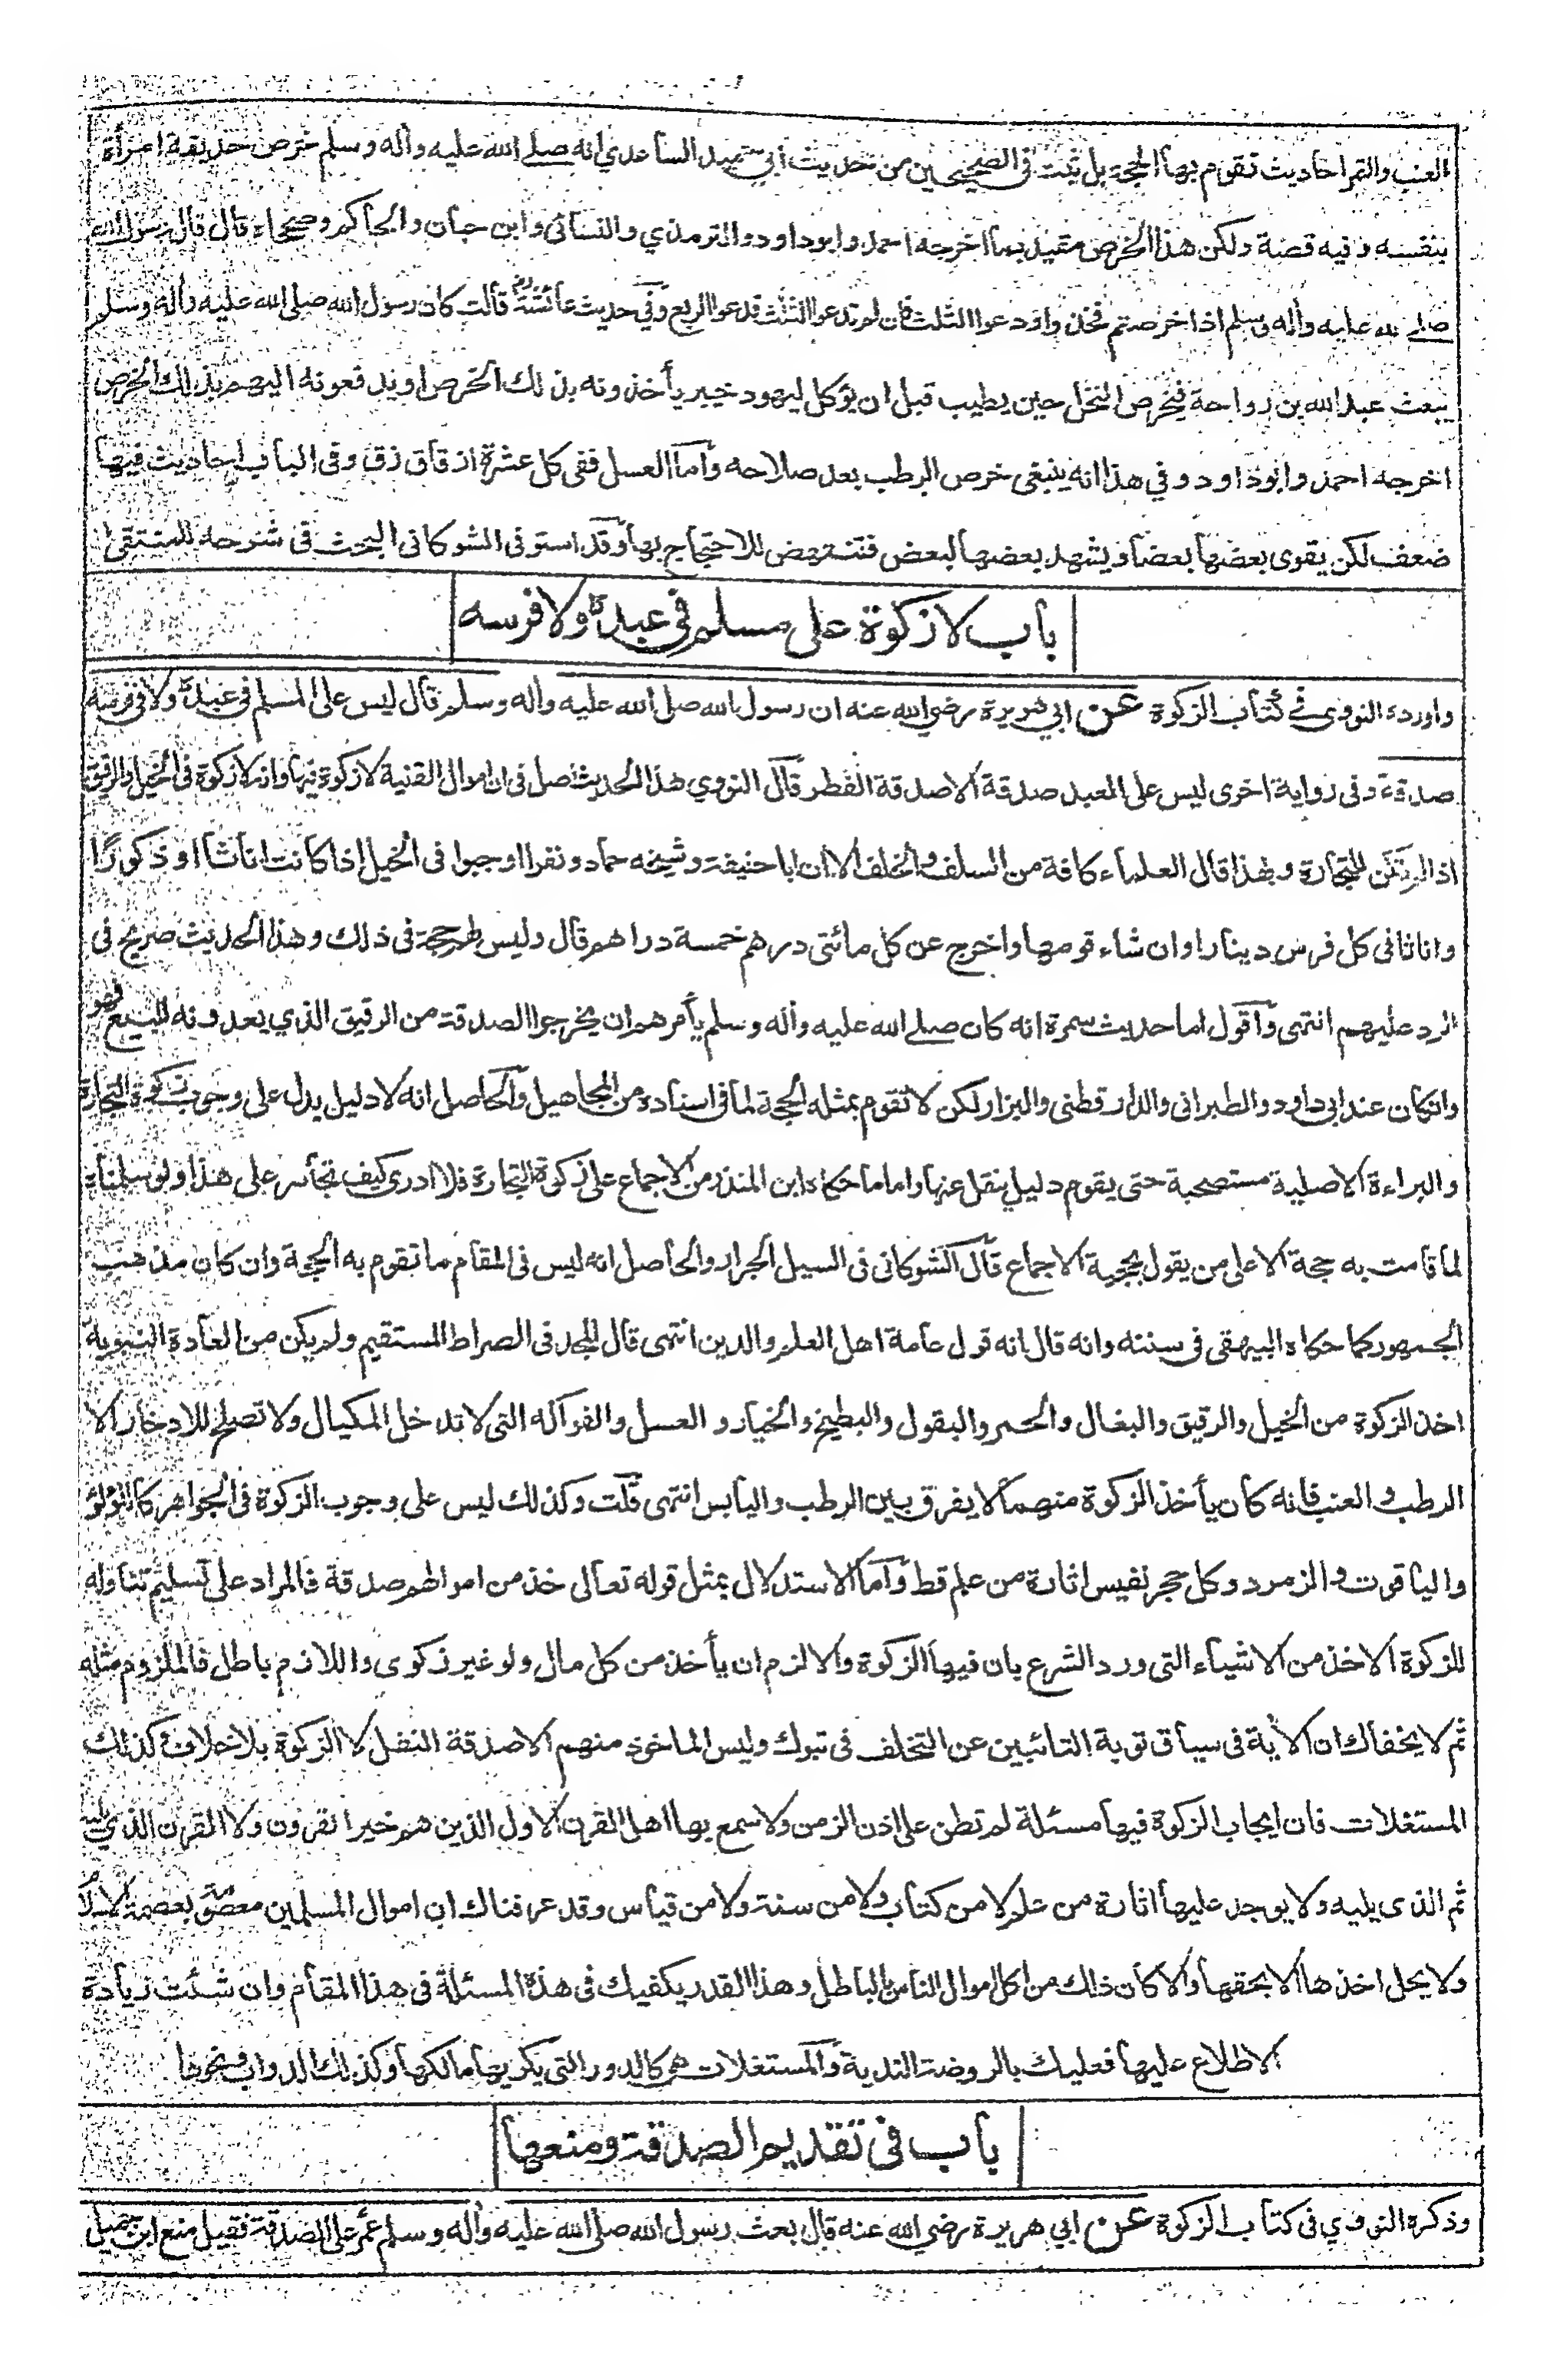 العنب والتمر احاديث تقوم بها الحجة بل ثبت فى الصحيحين من حديث ابي حميد الساعدي انه صلى الله عليه واله وسلم خرص حديقة امرأة
بنفسه وفيه قصة ولكن هذا الخرص مقيد بما اخرجه احمد وابوداود والترمذي والنسائى وابن حبان والحاكم وصححاه قال قال رسول الله
صلى الله عليه واله وسلم اذا خرصتم فخذوا ودعوا الثلث فان لم تدعوا الثلث فدعوا الربع وفي حديث عائشة رض قالت كان رسول الله صلى الله عليه واله وسلم
يبعث عبد الله بن رواحة فيخرص النخل حين يطيب قبل ان يؤكل ليهود خيبر يأخذونه بذلك الخرص او يدفعونه اليهم بذلك الخرص
اخرجه احمد وابوداود وفي هذا انه ينبغى خرص الرطب بعد صلاحه وأما العسل ففى كل عشرة ازقاق زق وفى الباب احاديث فيها
ضعف لكن يقوى بعضها بعضا ويشهد بعضها لبعض فتنتهض للاحتجاج بها وقد استوفى الشوكانى البحث فى شرحه للمنتقى
باب لا زكوة على مسلم في عبده ولا فرسه
واورده النووى في كتاب الزكوة عن ابي هريرة رضي الله عنه ان رسول الله صلى الله عليه واله وسلم قال ليس على المسلم فى عبده ولا فى فرسه
صدقة وفى رواية اخرى ليس على العبد صدقة الا صدقة الفطر قال النووي هذا الحديث اصل فى ان اموال القنية لا زكوة فيها وانه لا زكوة فى الخيل والرقيق
اذا لم تكن للتجارة وبهذا قال العلماء كافة من السلف والخلف الا ان ابا حنيفة وشيخه حماد ونفرا اوجبوا فى الخيل اذا كانت اناثا او ذكورًا
واناثا فى كل فرس دينارا وان شاء قومها واخرج عن كل مائتى درهم خمسة دراهم قال وليس لهم حجة فى ذلك وهذا الحديث صريح فى
الرد عليهم انتهى وأقول اما حديث سمرة انه كان صلى الله عليه واله وسلم يأمرهم ان يخرجوا الصدقة من الرقيق الذي يعدونه للبيع فهو
وان كان عند ابى داود والطبرانى والدارقطنى والبزار لكن لا تقوم بمثله الحجة لما فى اسناده من المجاهيل والحاصل انه لا دليل يدل على وجوب زكوة التجارة
والبراءة الاصلية مستصحبة حتى يقوم دليل ينقل عنها واما ما حكاه ابن المنذر من الاجماع على زكوة التجارة فلا ادرى كيف تجاسر على هذا ولو سلمناه
لما قامت به حجة الا على من يقول بحجية الاجماع قال الشوكانى فى السيل الجرار والحاصل انه ليس فى المقام ما تقوم به الحجة وان كان مذهب
الجمهور كما حكاه البيهقى فى سننه وانه قال انه قول عامة اهل العلم والدين انتهى قال المجد فى الصراط المستقيم ولم يكن من العادة النبوية
اخذ الزكوة من الخيل والرقيق والبغال والحمر والبقول والبطيخ والخيار و العسل والفواكه التى لا تدخل المكيال ولا تصلح للادخار الا
الرطب و العنب فانه كان يأخذ الزكوة منهما لا يفرق بين الرطب واليابس انتهى قلت وكذلك ليس على وجوب الزكوة فى الجواهر كاللؤلؤ
والياقوت والزمرد وكل حجر نفيس اثارة من علم قط وأما الاستدلال بمثل قوله تعالى خذ من اموالهم صدقة فالمراد على تسليم تناوله
للزكوة الاخذ من الاشياء التى ورد الشرع بان فيها الزكوة والا لزم ان يأخذ من كل مال ولو غير زكوى واللازم باطل فالملزوم مثله
ثم لا يخفاك ان الاية فى سياق توبة التائبين عن التخلف فى تبوك وليس الماخوذ منهم الا صدقة النفل لا الزكوة بلا خلاف وكذلك
المستغلات فان ايجاب الزكوة فيها مسئلة لم تطن على اذن الزمن ولا سمع بها اهل القرن الاول الذين هم خير القرون ولا القرن الذي يليه
ثم الذى يليه ولا يوجد عليها اثارة من علم لا من كتاب ولا من سنة ولا من قياس وقد عرفناك ان اموال المسلمين معصومة بعصمة الاسلام
ولا يحل اخذها الا بحقها والا كان ذلك من اكل اموال الناس بالباطل وهذا القدر يكفيك فى هذه المسئلة فى هذا المقام وان شئت زيادة
الاطلاع عليها فعليك بالروضة الندية والمستغلات هى كالدور التى يكريها مالكها وكذلك الدواب ونحوها
باب فى تقديم الصدقة ومنعها
وذكره النووي فى كتاب الزكوة عن ابي هريرة رضي الله عنه قال بعث رسول الله صلى الله عليه وأله وسلم عمر على الصدقة فقيل منع ابن جميل